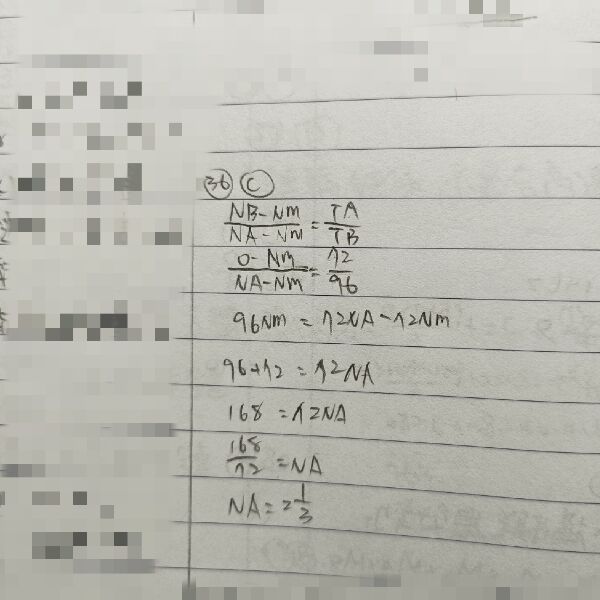 36 C
NB-NM/NA-NM = TA/TB
0-NM/NA-NM = 72/96
96NM = 72NA-72NM
96+72 = 72NA
168 = 72NA
168/72 = NA
NA = 2 1/3